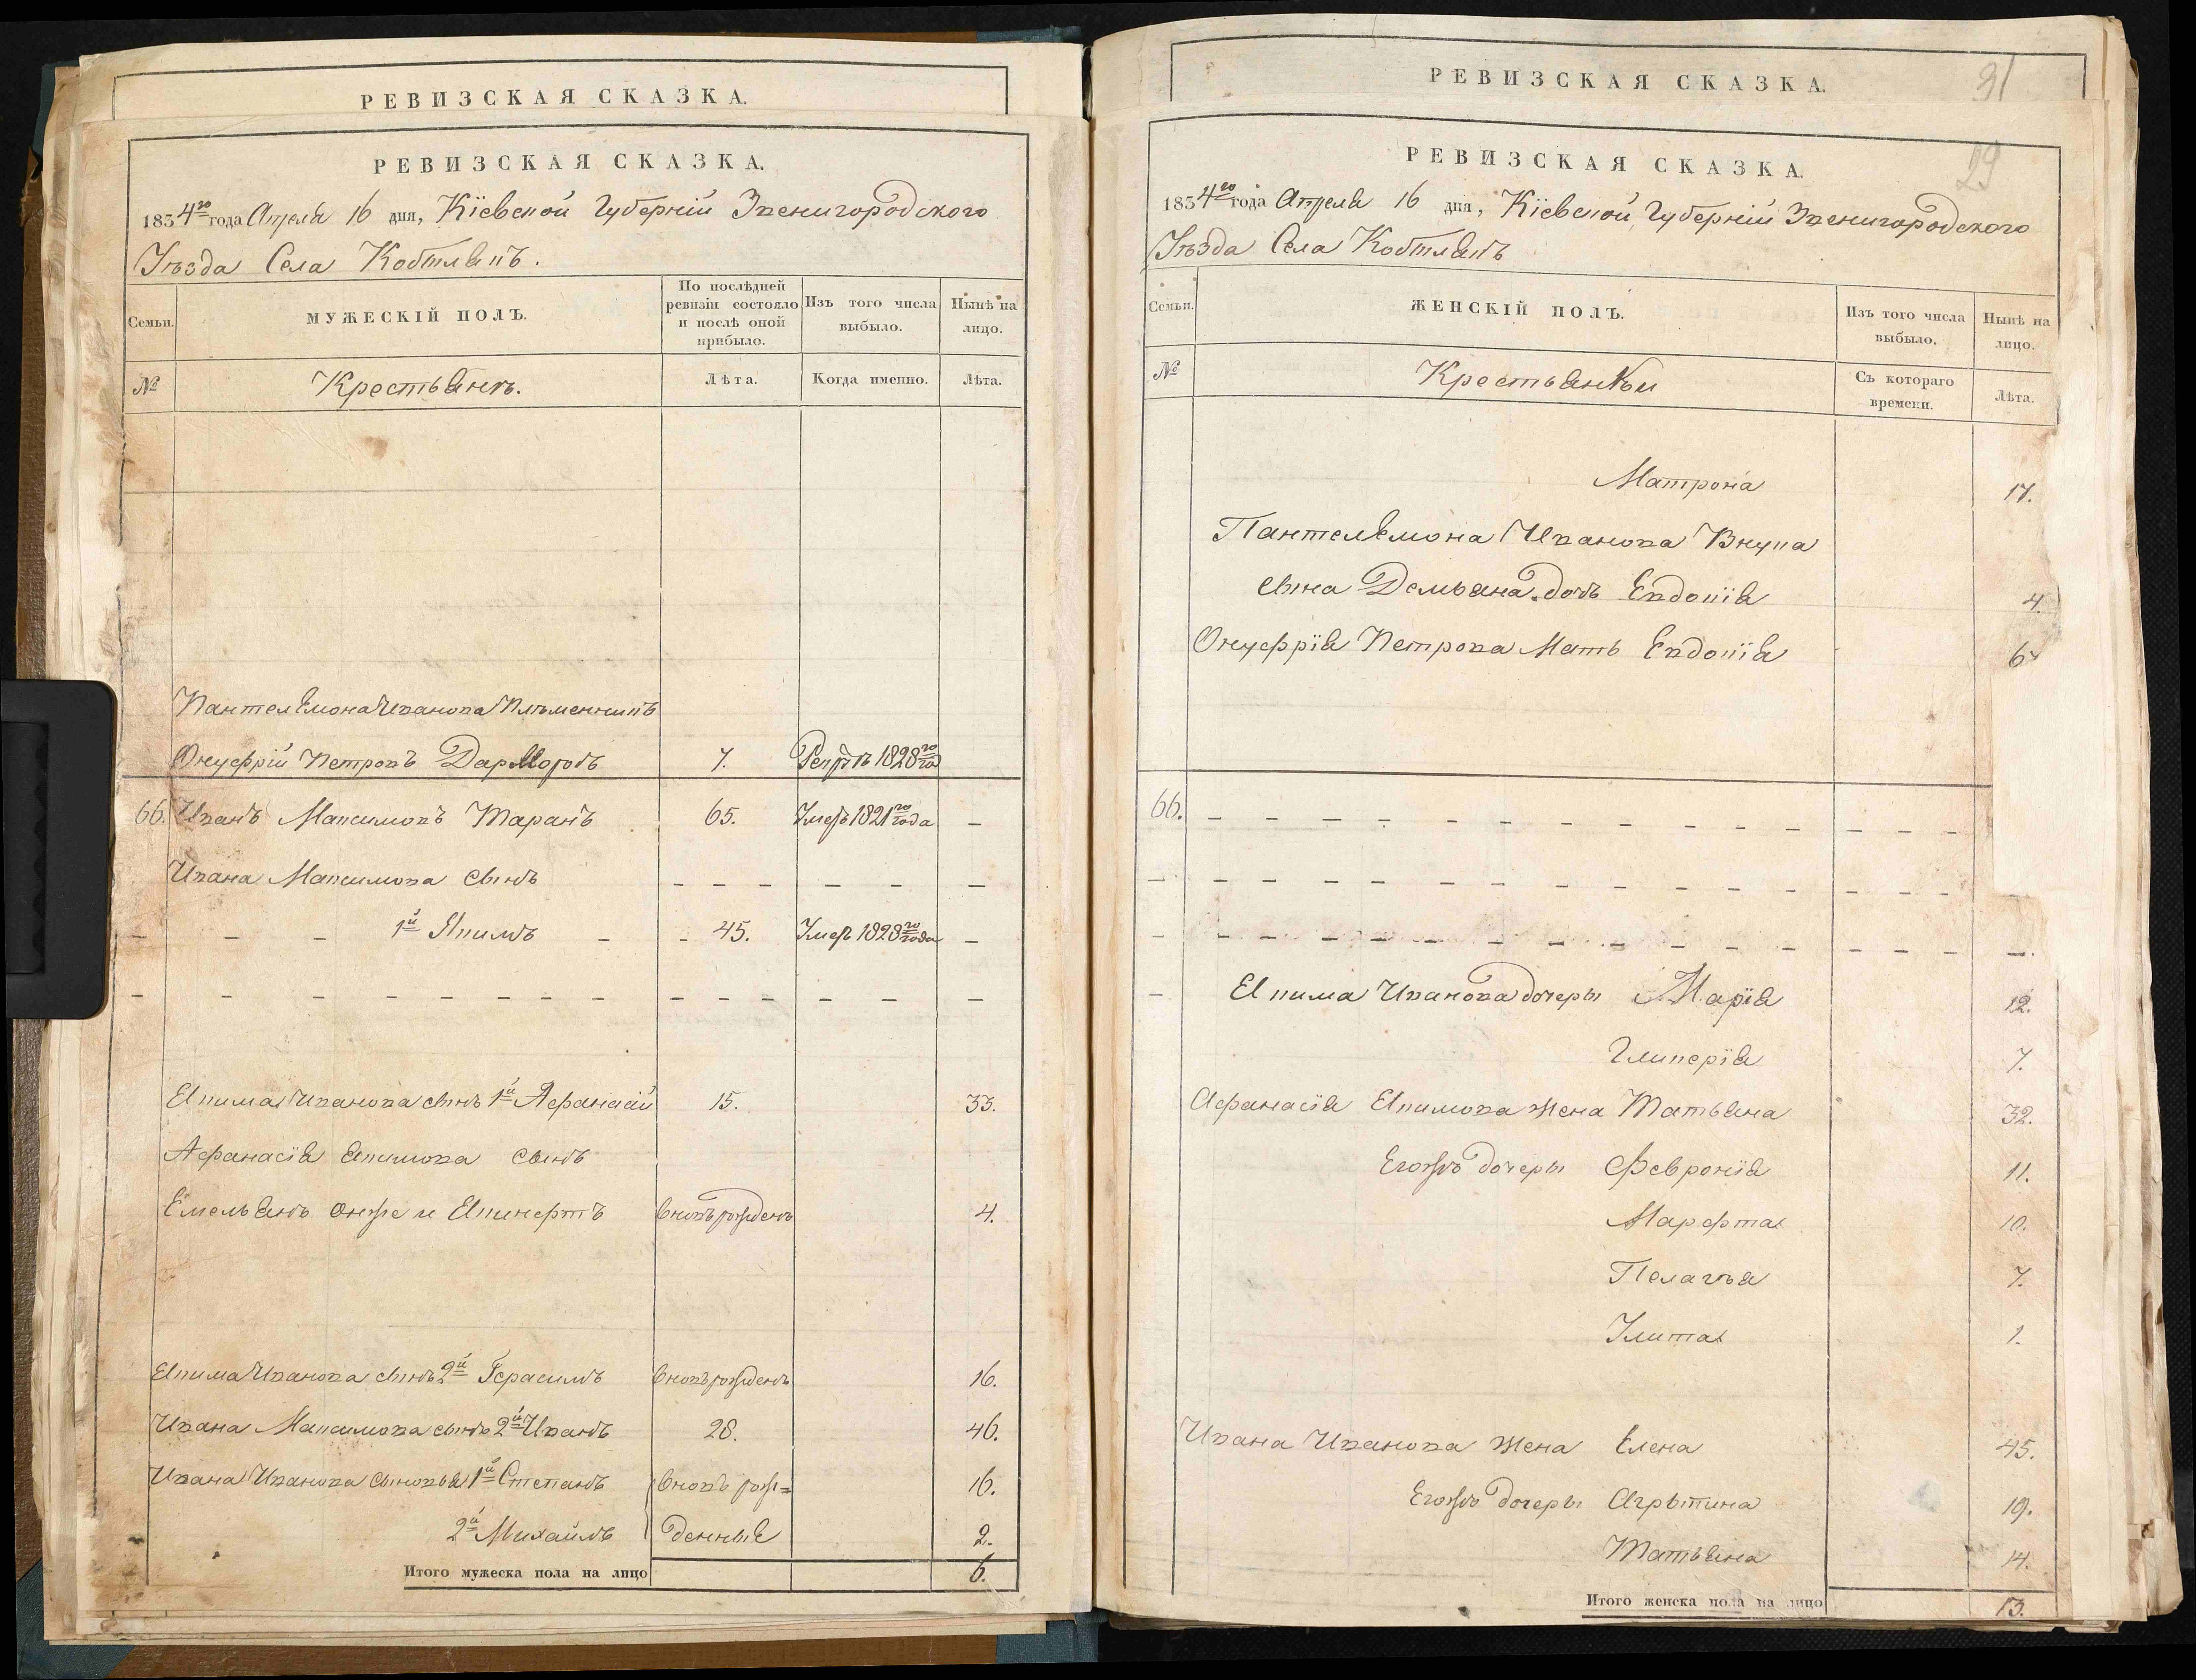 РЕВИЗСКАЯ СКАЗКА.
РЕВИЗСКАЯ СКАЗКА.
1834го года Апреля 16 дня, Кіевской Губерніи Звенигородского
Уѣзда Села
Семьи.
МУЖЕСКІЙ ПОЛЪ.
По послѣдней ревизіи состояло и послѣ оной прибыло.
Изъ того числа выбыло.
Нынѣ на лицо.
№
Крестьянъ.
Лѣта.
Когда именно.
Лѣта.
Пантелемона Иванова Племенникъ
Онуфрій Петровъ 7. 1828го
66. Иванъ Максимовъ Таранъ 65. Умеръ 1821го года —
Ивана Максимова сынъ — — — — — —
— — — 1й Якимъ — — 45. Умеръ 1828го года —
— — — — — — — — — — — — — —
Якима Иванова сынъ 1й Афанасій 15. 33.
Афанасія Якимова сынъ
Емельянъ онже и вновьрожденъ 4.
Якима Иванова сынъ 2й Герасимъ вновьрожденъ 16.
Ивана Максимова сынъ 2й Иванъ 28. 46.
Ивана Иванова сыновья 1й Степанъ вновь рож= 16.
2й Михаилъ денные 2.
Итого мужеска пола на лицо 6.
РЕВИЗСКАЯ СКАЗКА.
31
РЕВИЗСКАЯ СКАЗКА.
29
1834го года Апреля 16 дня, Кіевской Губерніи Звенигородского
Уѣзда Села
Семьи.
ЖЕНСКІЙ ПОЛЪ.
Изъ того числа выбыло.
Нынѣ на лицо.
№
Крестьянки
Съ котораго времени.
Лѣта.
Матрона 17.
Пантелемона Иванова Внука
сына Демьяна дочь Евдокія 4.
Онуфрія Петрова Мать Евдокія
66. — — — — — — — — — — — — —
— — — — — — — — — — — — — —
— — — — — — — — — — — — — — —
— Якима Иванова дочери Марія 12.
Гликерія 7.
Афанасія Якимова жена Татьяна 32.
Егожъ дочери Февронія 11.
Марфта 10.
Пелагѣя 7.
Улита 1.
Ивана Иванова жена Елена 45.
Егожъ дочери Агрыпина 19.
Татьяна 14.
Итого женска пола на лицо 13.